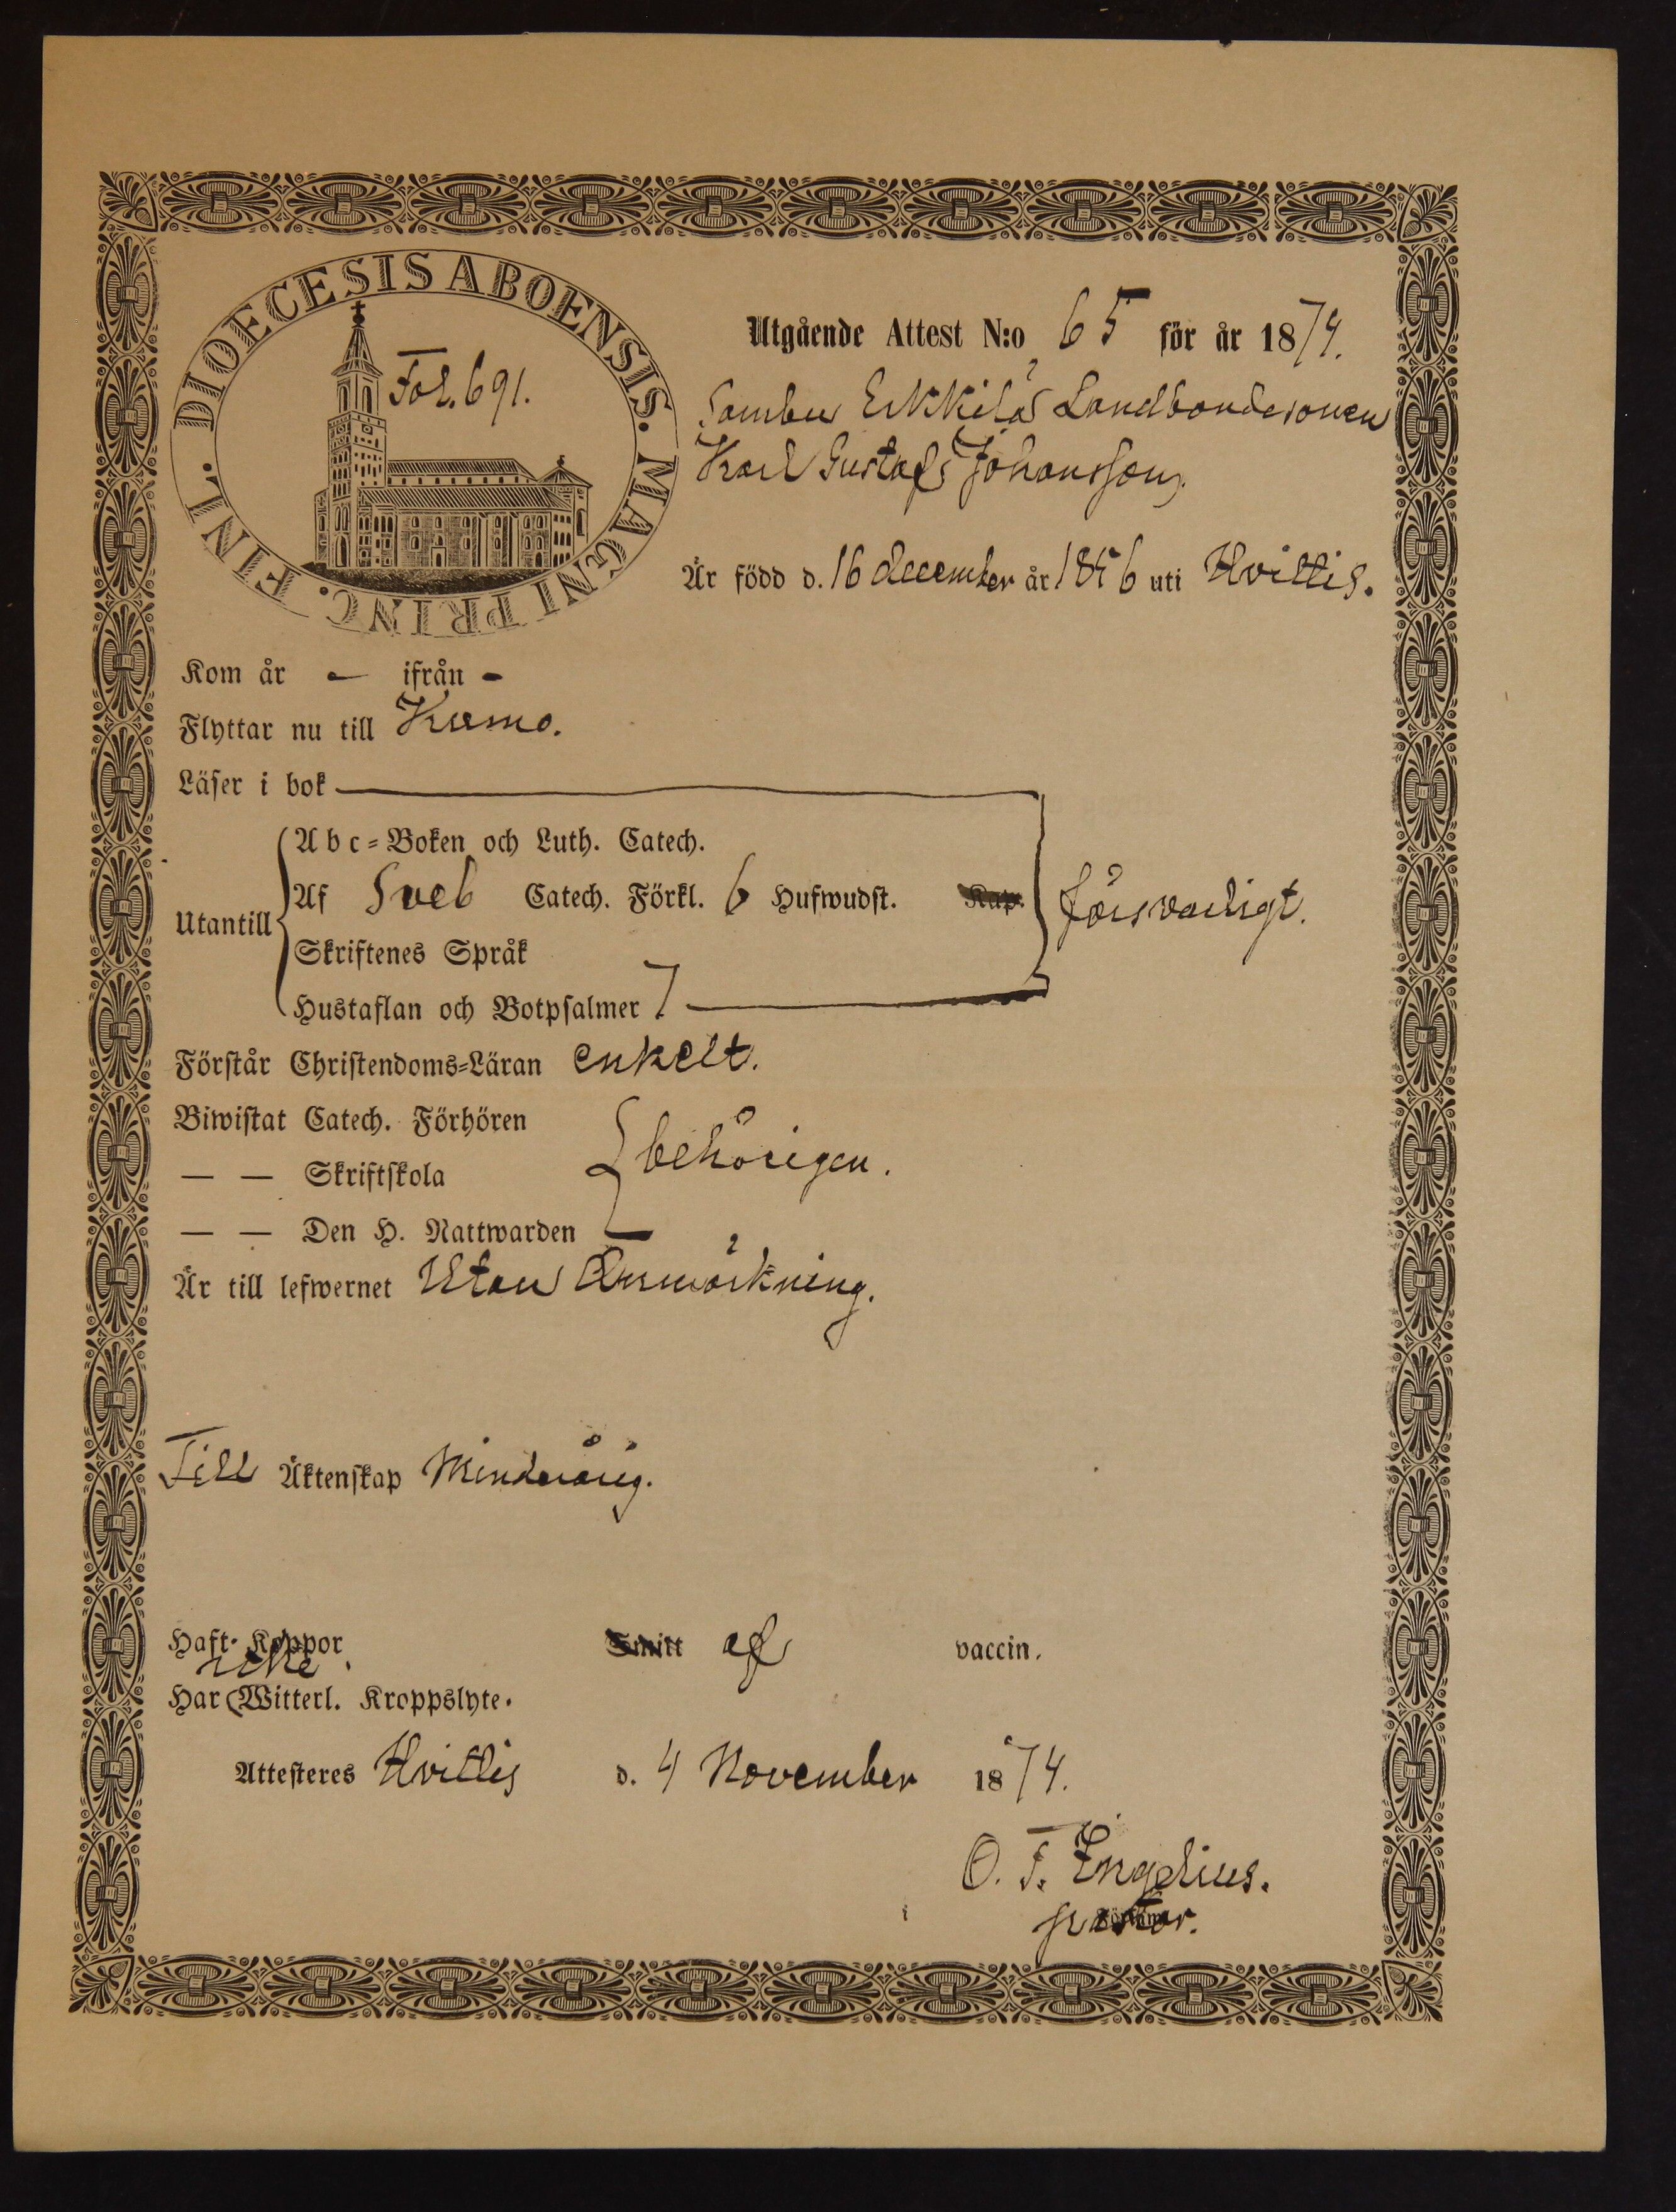 DIOECESIS ABOENSIS. MAGNI PRINC. FINL.
Fol. 691.
Utgående Attest N:o 65 för år 1874.
Sambu Erkkilä Landbondesonen
Karl Gustaf Johansson,
Är född d. 16 december år 1856 uti Hvittis.
Kom år — ifrån —
Flyttar nu till Kumo.
Läser i bok
Utantill
Abc-Boken och Luth. Catech.
Af Sveb Catech. Förkl. 6 Hufwudst. Kap. försvarligt.
Skriftenes Språk
Hustaflan och Botpsalmer 7
Förstår Christendoms-Läran enkelt.
Biwistat Catech. Förhören
— — Skriftskola behörigen.
— — Den H. Nattwarden
Är till lefwernet Utan Anmärkning.
Till Äktenskap Minderårig.
Haft Koppor Smitt af vaccin.
icke
Har Witterl. Kroppslyte.
Attesteres Hvittis d. 4 November 1874.
O. F. Engelius.
pastor.